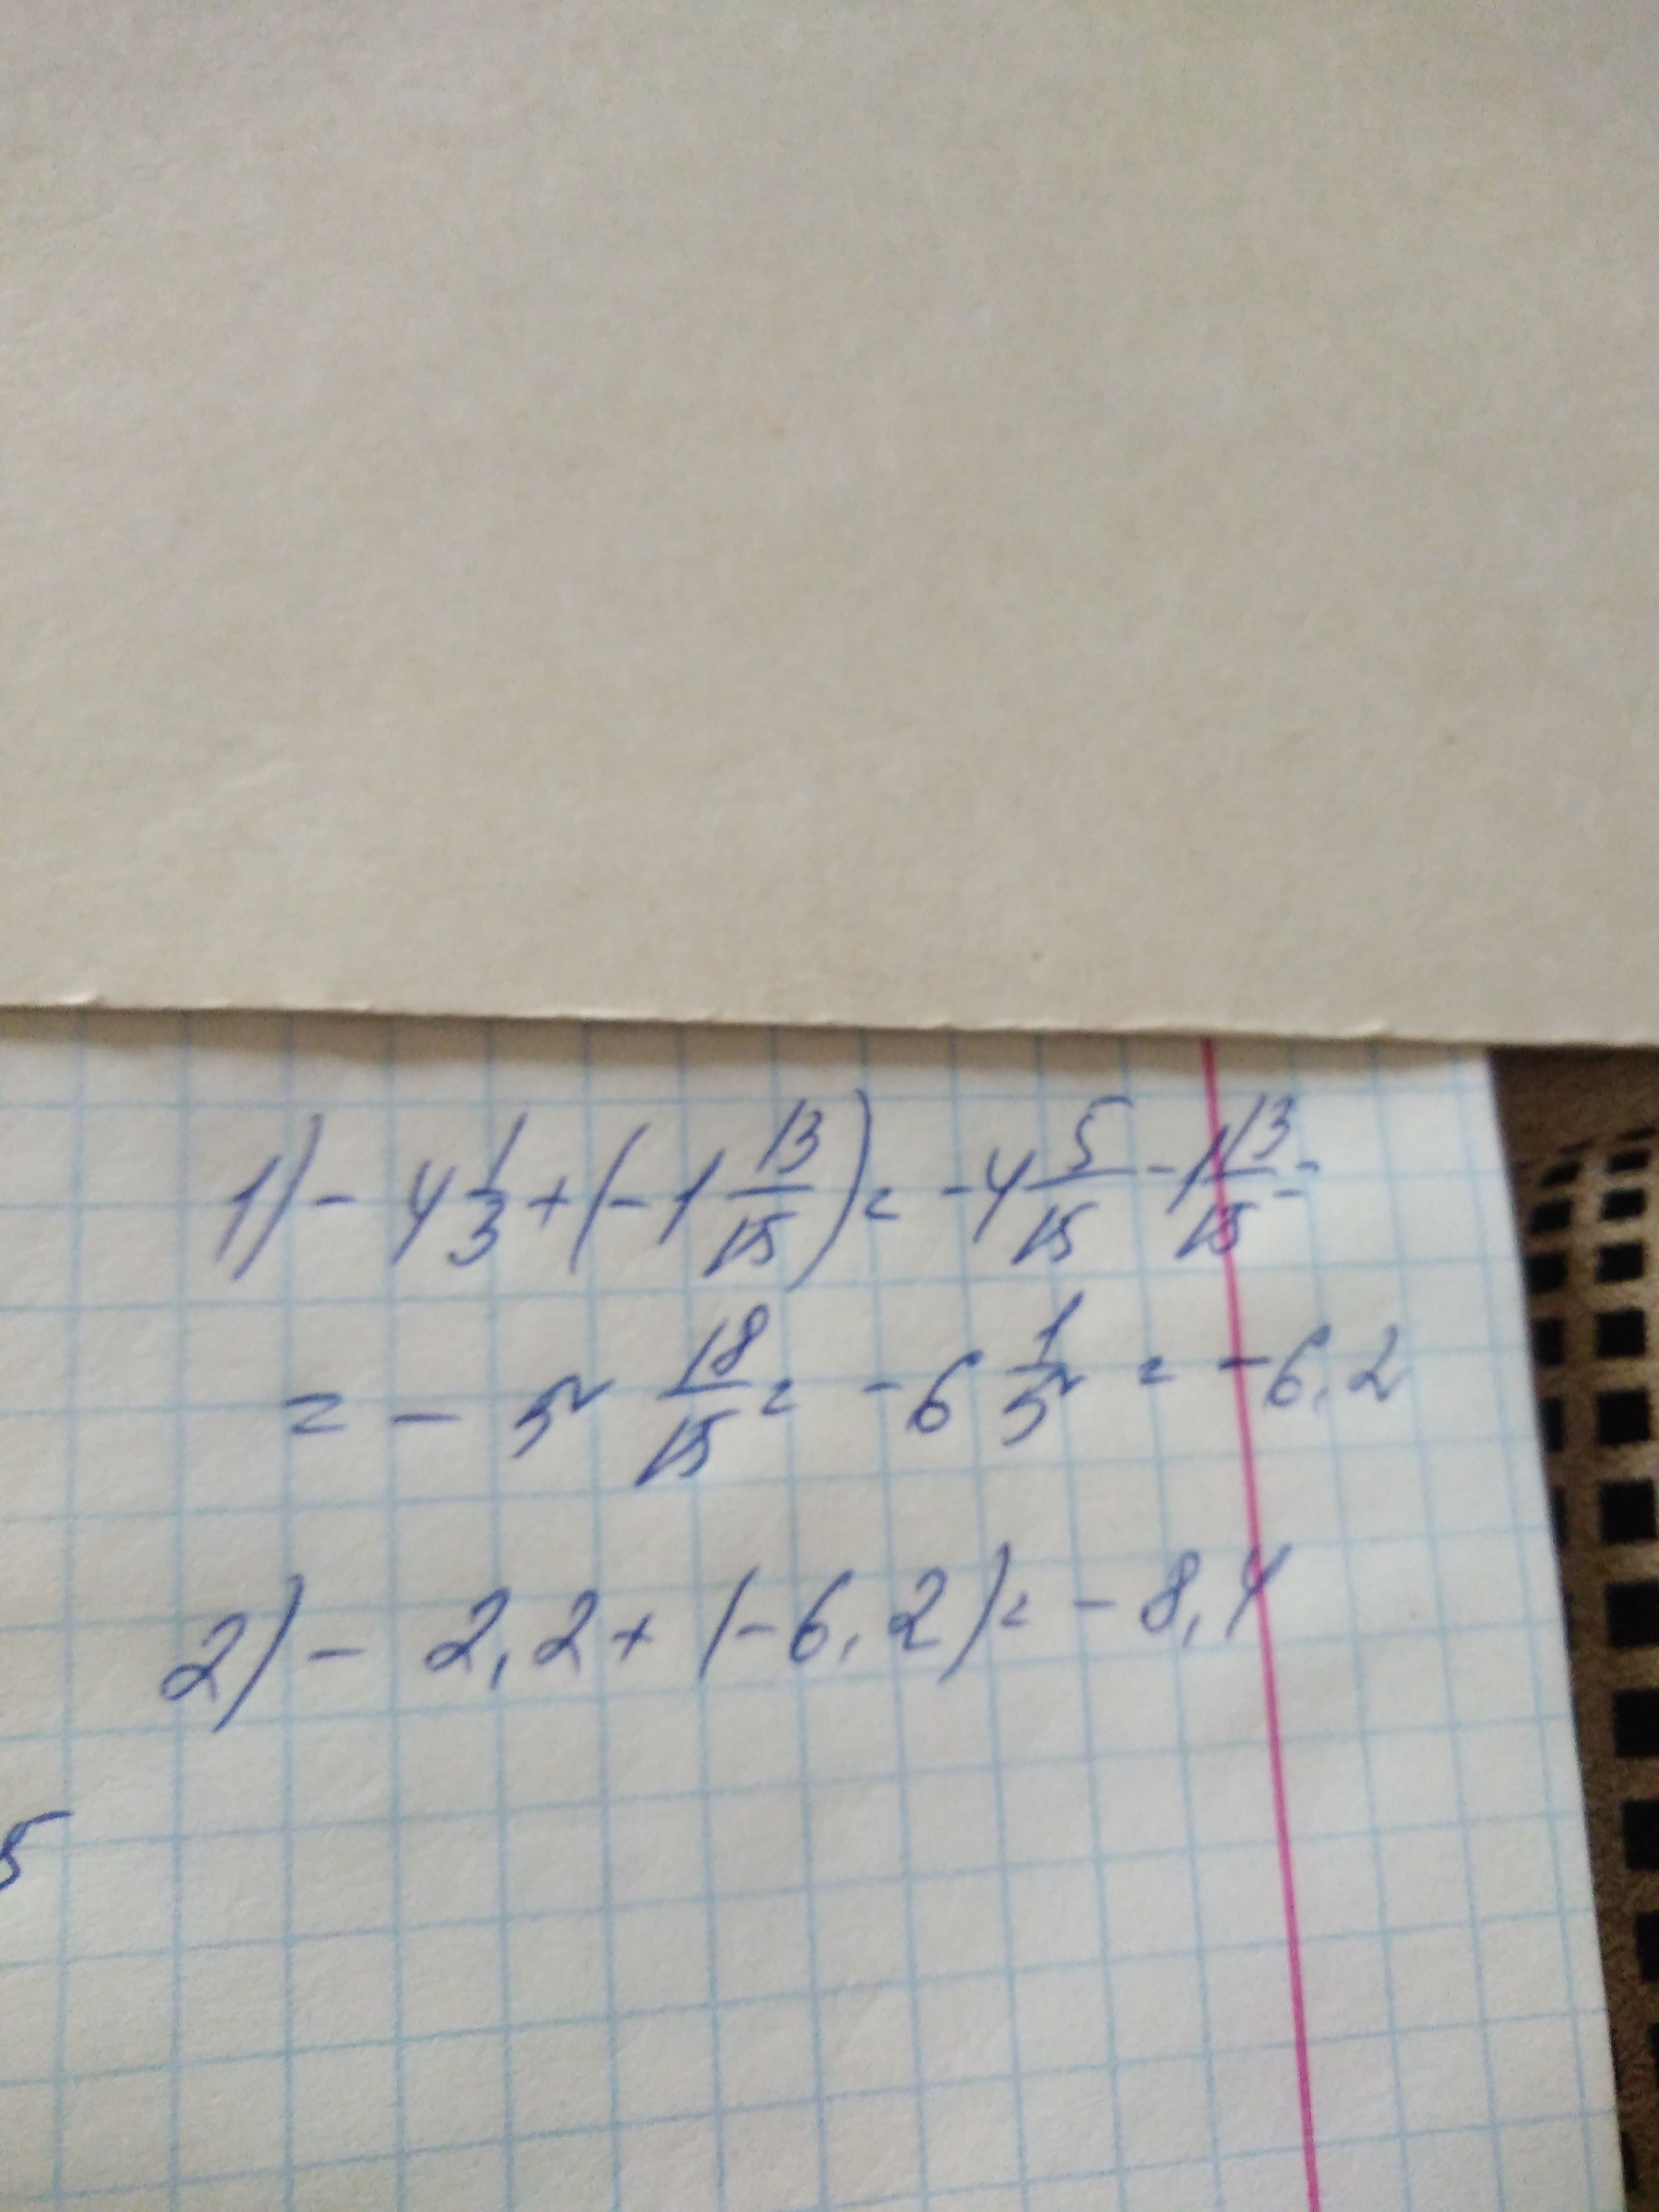 1) - 4 1/3 + (-1 13/15) = -4 5/15 - 1 13/15 =
= - 5 18/15 = -6 1/5 = -6,2
2) - 2,2 + (-6,2) = -8,4
5